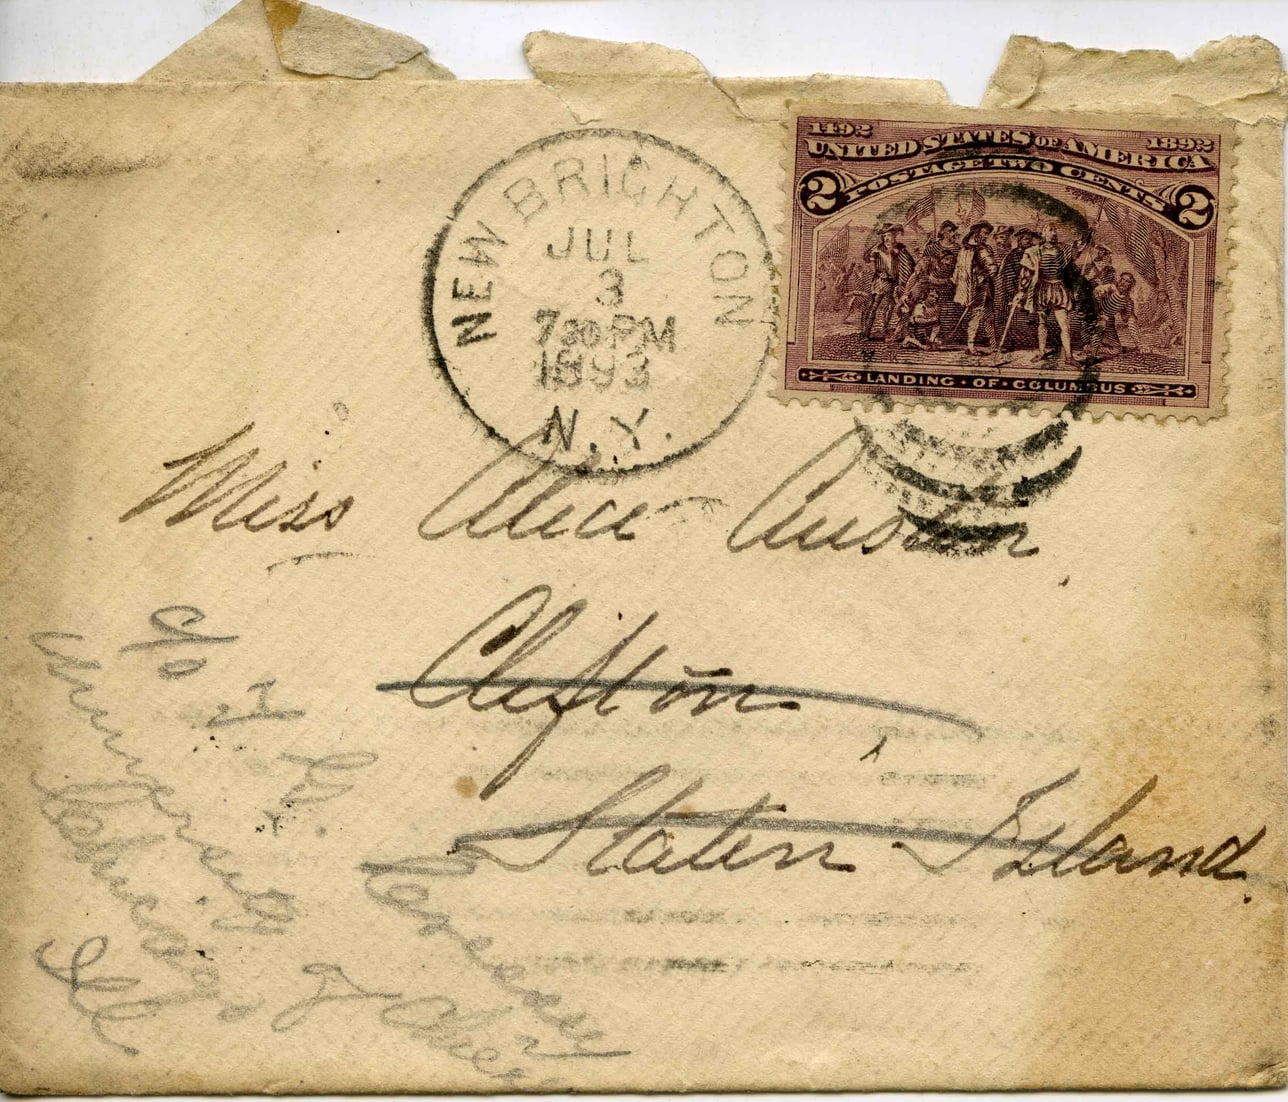 NEW BRIGHTON
JUL
3
730 PM
1893
N.Y.
1492 1892
UNITED STATES OF AMERICA
POSTAGE TWO CENTS
2 2
LANDING · OF · COLUMBUS
Miss Alice Austen
Clifton
Staten Island.
c/o
University of
Chicago
Ill